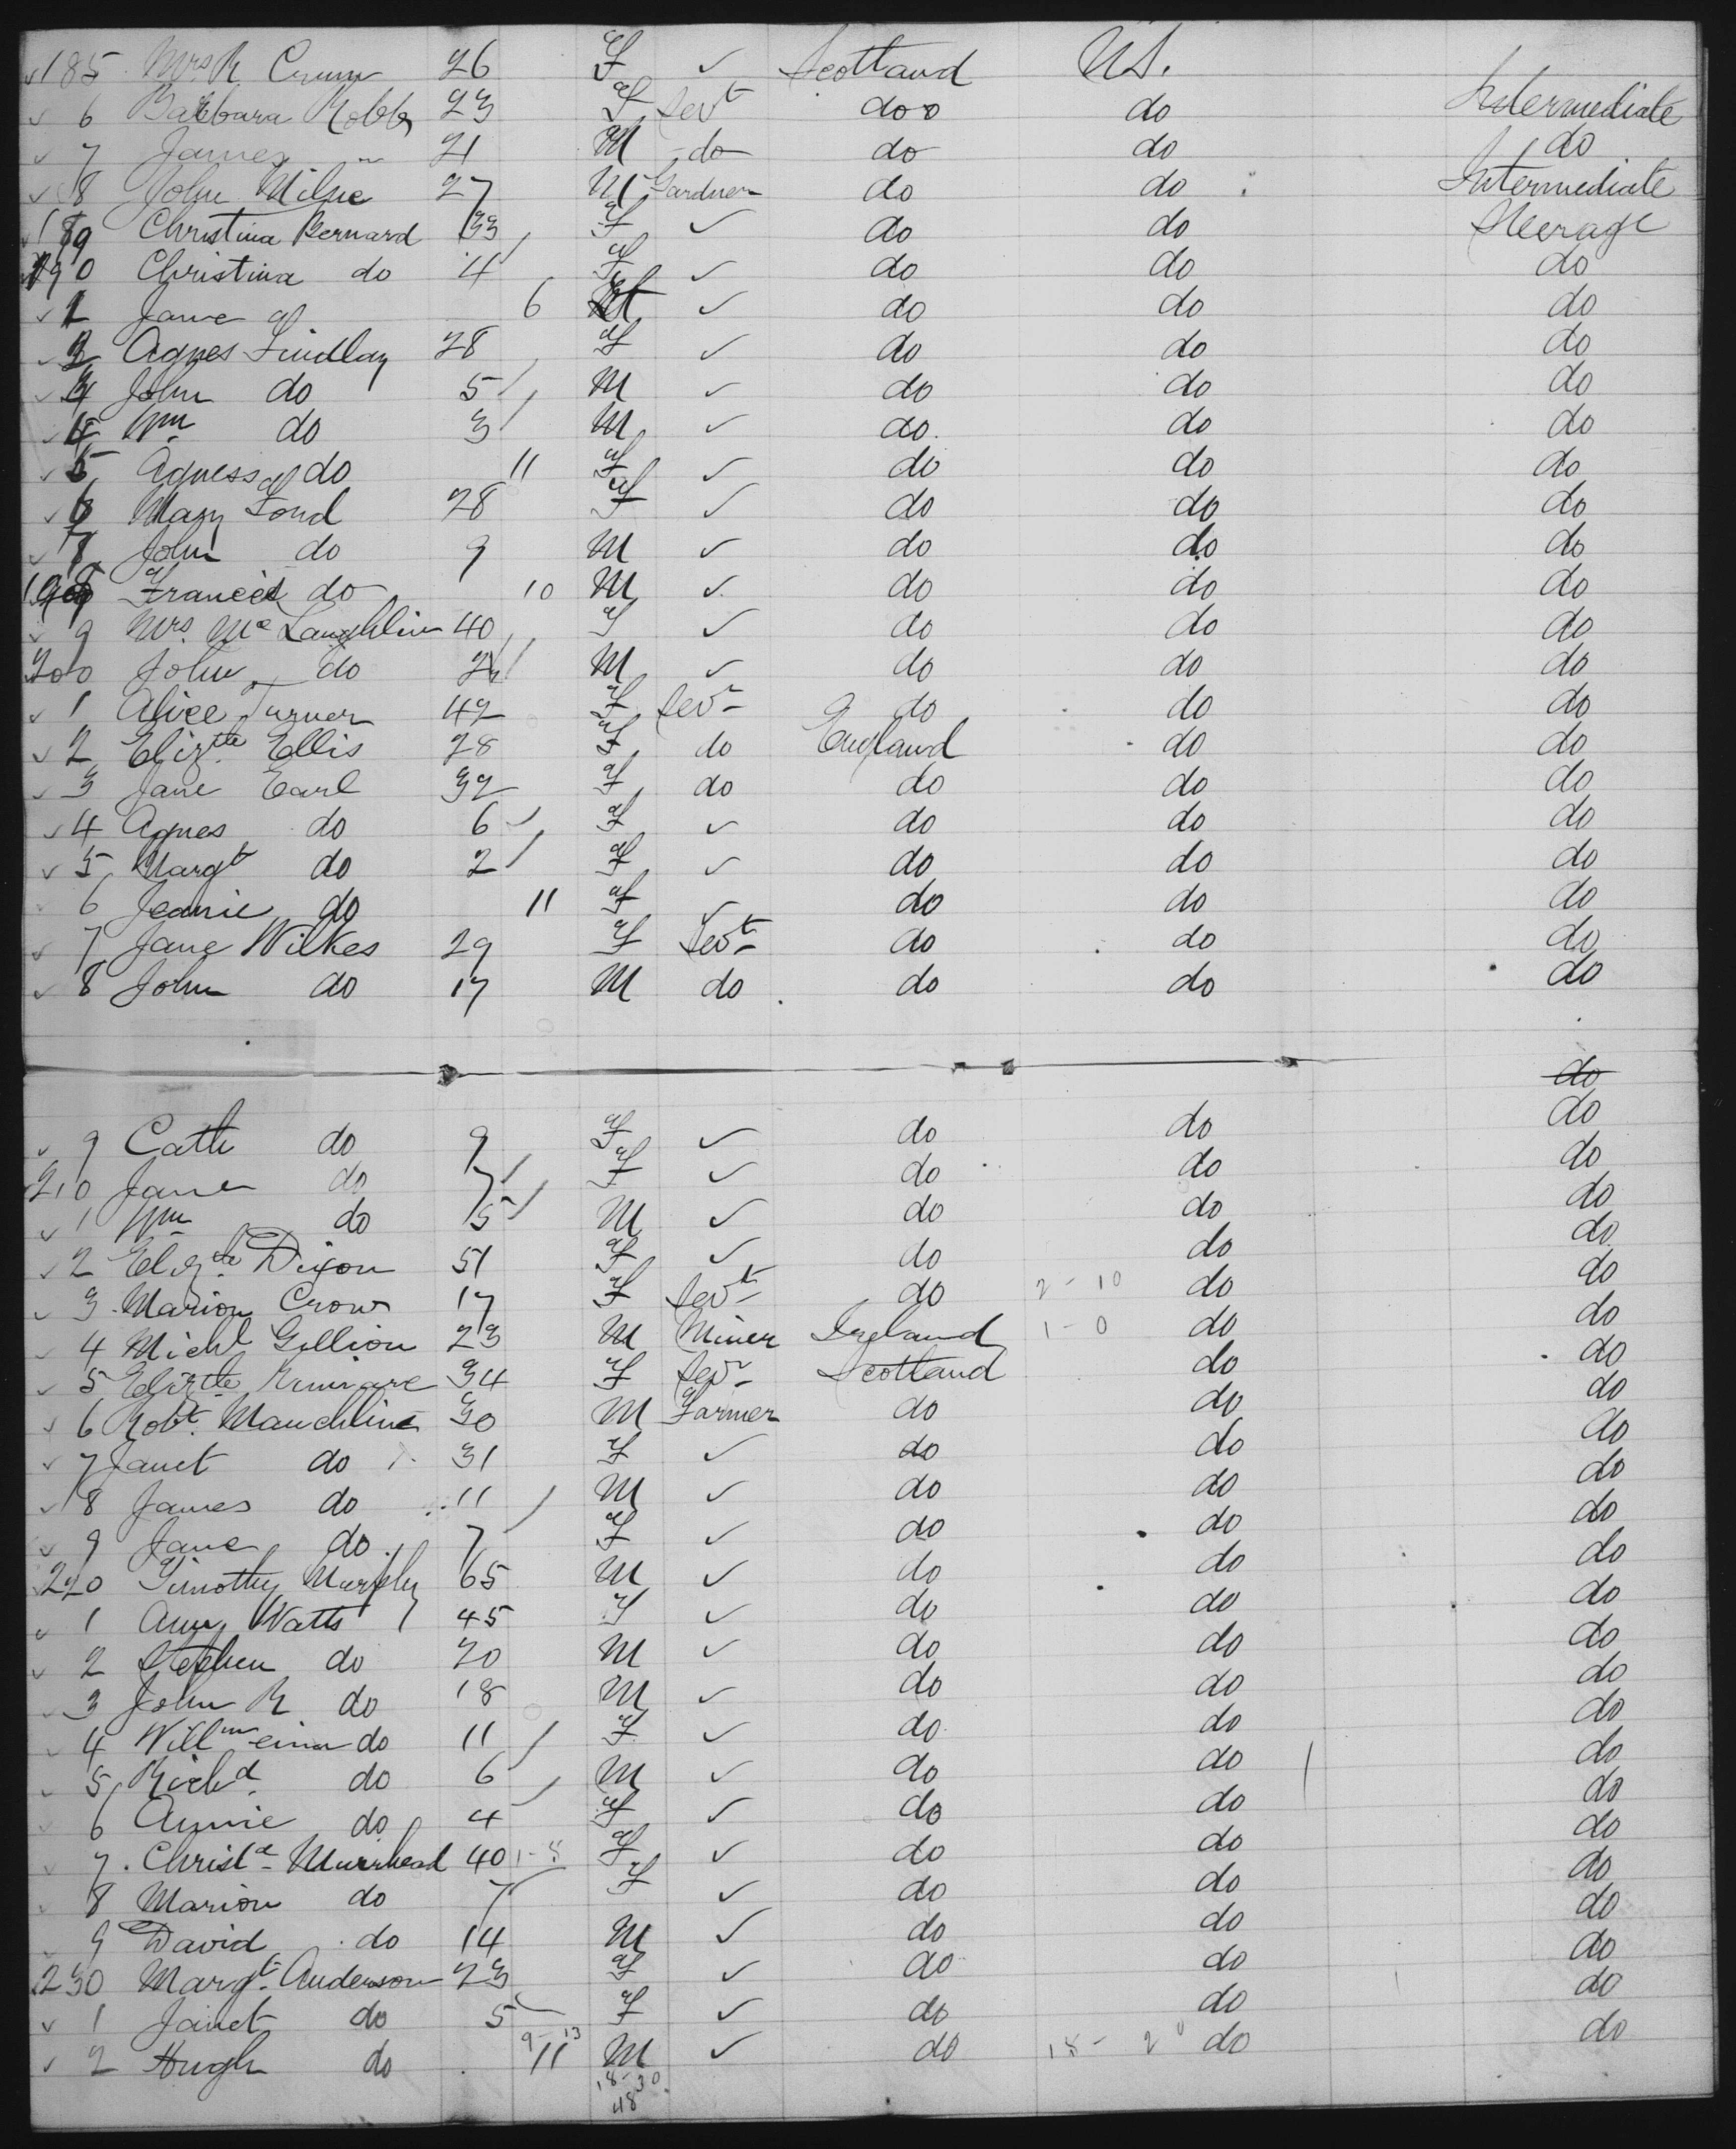 185 Mrs R Crum 26 F ✓ Scotland U.S.
6 Barbara Robb 23 F Sevt do do Intermediate
7 James " 21 M do do do do
8 John Milne 27 M Gardner do do Intermediate
189 Christina Bernard 33 F ✓ do do Steerage
190 Christina do 4 F ✓ do do do
1 Jane 6 ✓ do do do
2 Agnes Findlay 28 F ✓ do do do
3 John do 5 M ✓ do do do
4 Wm do 3 M ✓ do do do
5 Agness do 11 F ✓ do do do
6 Mary Fond 28 F ✓ do do do
7 John do 9 M ✓ do do do
198 Francis do 10 M ✓ do do do
9 Mrs. Mc Laughlin 40 F ✓ do do do
200 John do M ✓ do do do
1 Alice Turner 42 F Sevt do do do
2 Elizth Ellis 28 F do England do do
3 Jane Earl 32 F do do do do
4 Agnes do 6 F ✓ do do do
5 Margt do 2 F ✓ do do do
6 Jeanie do 11 F ✓ do do do
7 Jane Wilkes 29 F Sevt do do do
8 John do 17 M do do do do
do
9 Cath do 9 F ✓ do do do
210 Jane do 7 F ✓ do do do
1 Wm do 5 M ✓ do do do
2 Elizth Dixon 51 F ✓ do do do
3 Marion Crow 17 F Sevt do 2-10 do do
4 Michl Gillion 23 M Miner Ireland 1-0 do do
5 Elizth 34 F Sevt Scotland do do
6 Robt. Mauchline 30 M Farmer do do do
7 Janet do 31 F ✓ do do do
8 James do 11 M ✓ do do do
9 Jane do 7 F ✓ do do do
220 Timothy Murphy 65 M ✓ do do do
1 Amy Watts 45 F ✓ do do do
2 Stephen do 20 M ✓ do do do
3 John R do 18 M ✓ do do do
4 Willmeina do 11 F ✓ do do do
5 Richd do 6 M ✓ do do do
6 Annie do 4 F ✓ do do do
7 Christa Muirhead 40 F ✓ do do do
8 Marion do 7 F ✓ do do do
9 David do 14 M ✓ do do do
230 Margt. Anderson 23 F ✓ do do do
1 Janet do 5 F ✓ do do do
9-13
2 Hugh do 11 M ✓ do 18-20 do do
18-30
48